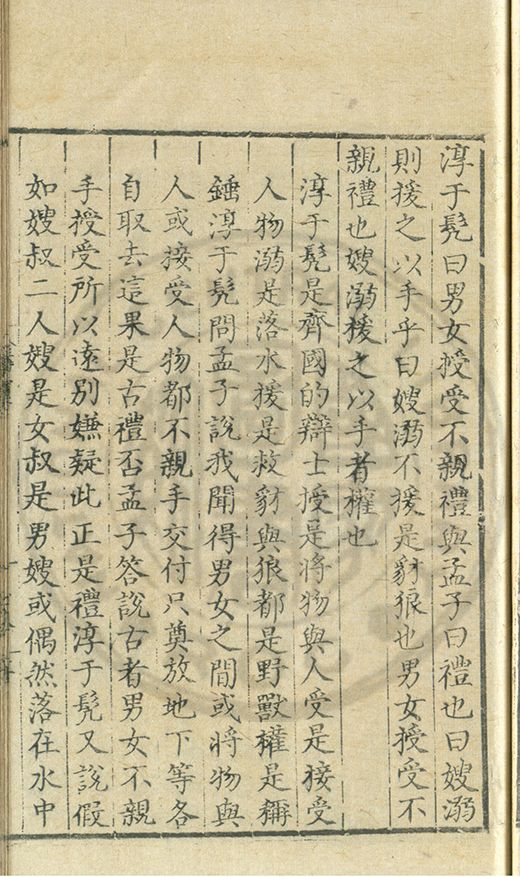 淳于髡曰男女授受不親禮與孟子曰禮也曰嫂溺
則援之以手乎曰嫂溺不援是豺狼也男女授受不
親禮也嫂溺援之以手者權也
淳于髡是齊國的辯士授是將物與人受是接受
人物溺是落水援是救豺與狼都是野獸權是稱
錘淳于髡問孟子說我聞得男女之間或將物與
人或接受人物都不親手交付只奠放地下等各
自取去這果是古禮否孟子答說古者男女不親
手授受所以遠別嫌疑此正是禮淳于髡又說假
如嫂叔二人嫂是女叔是男嫂或偶然落在水中